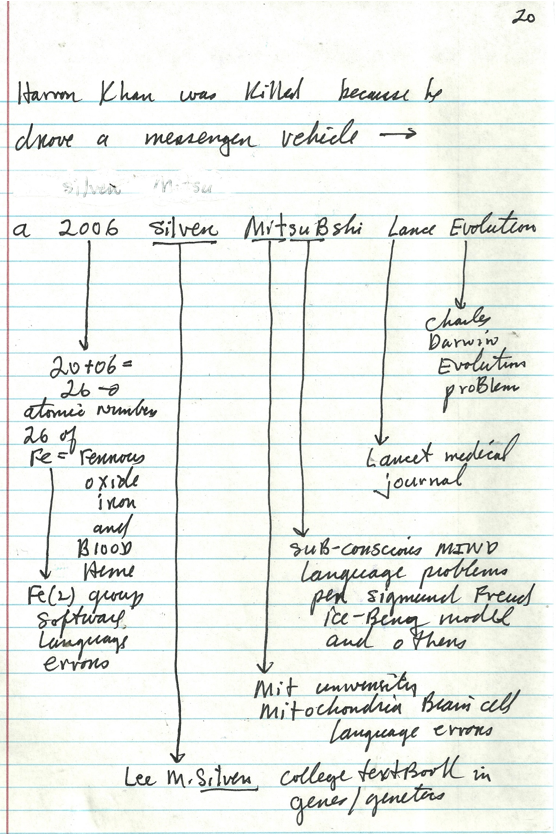 20
Harron Khan was killed because he
drove a messenger vehicle →
silver Mitsu
a 2006 Silver MitsuBshi Lance Evolution
Charles
Darwin
Evolution
problem
20+06=
26 →
atomic number
26 of
Fe = Ferrous
oxide
iron
and
Blood
Heme
Fe(2) group
software,
language
errors
Lancet medical
journal
SUB-conscious MIND
language problems
per Sigmund Freud
ice-Berg model
and others
Mit university
Mitochondria Brain cell
language errors
Lee M. Silver college textBook in
genes/geneters